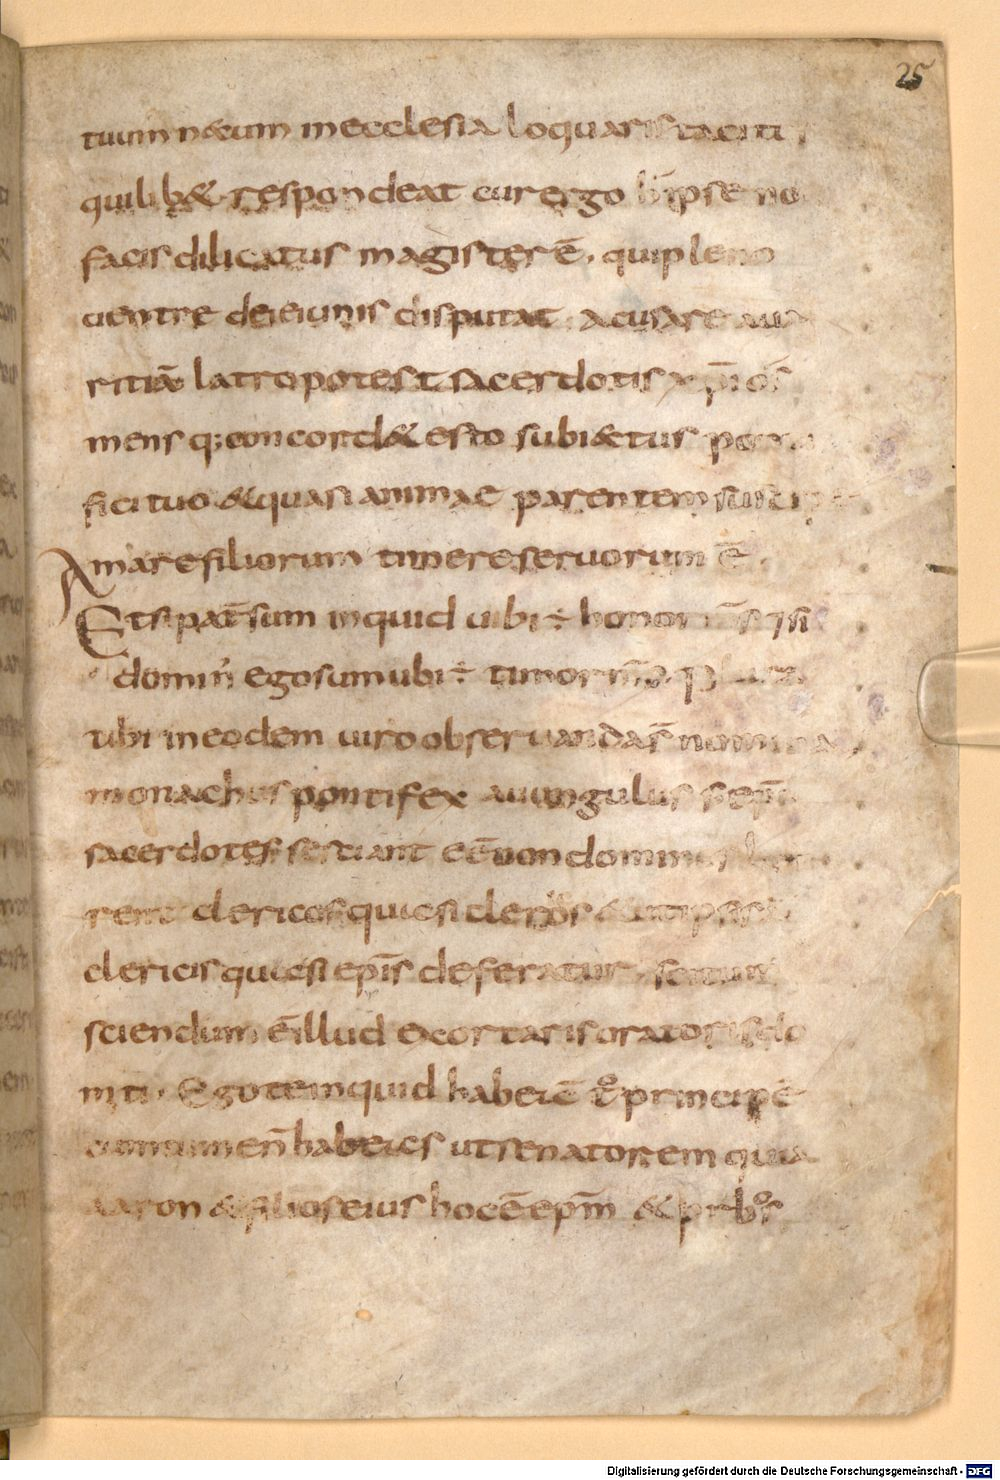 25
tuum n&cum in ecclesia loquaris taciti
quilib& respondeat cur ergo h̄ ipse no
facis dilicatus magister ē, qui pleno
uentre deieiunis disputat acusare aua
ritiā latro potest sacerdotis xp̄i os
mens q; concord& esto subiectus
fici tuo &quasi animae parentem
Amare filiorum timere seruorum ē
Et si pat̄ sum inquid ubi ÷ honor m̄s &si
domin' ego sum ubi ÷ timor m̄s
tibi in eodem uiro obseruanda s̄
monachus pontifex auungulus
sacerdotes sesciant eē non dominus
clericos quasi clericos
clericis quasi ep̄is deferatur
sciendum ē illud excortaris oratoris do
miti. Ego te inquid habeiē principē
cum men̄ habeies ut senatorem quia
aaron & filios eius hoc ē ep̄m & prb̄os
Digitalisierung gefördert durch die Deutsche Forschungsgemeinschaft - DFG